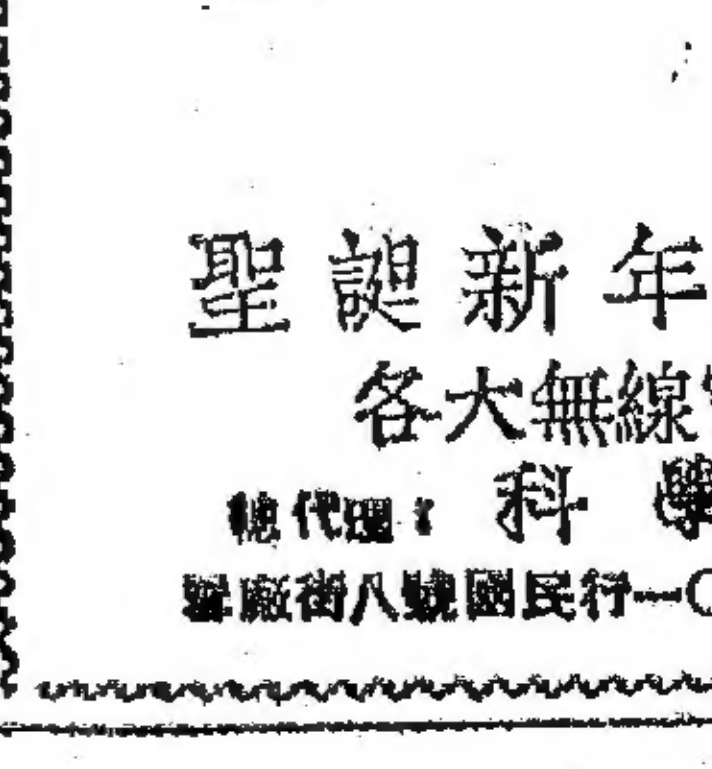 聖誕新年
各大無線
總代理：科學
廠街八號國民行一〇